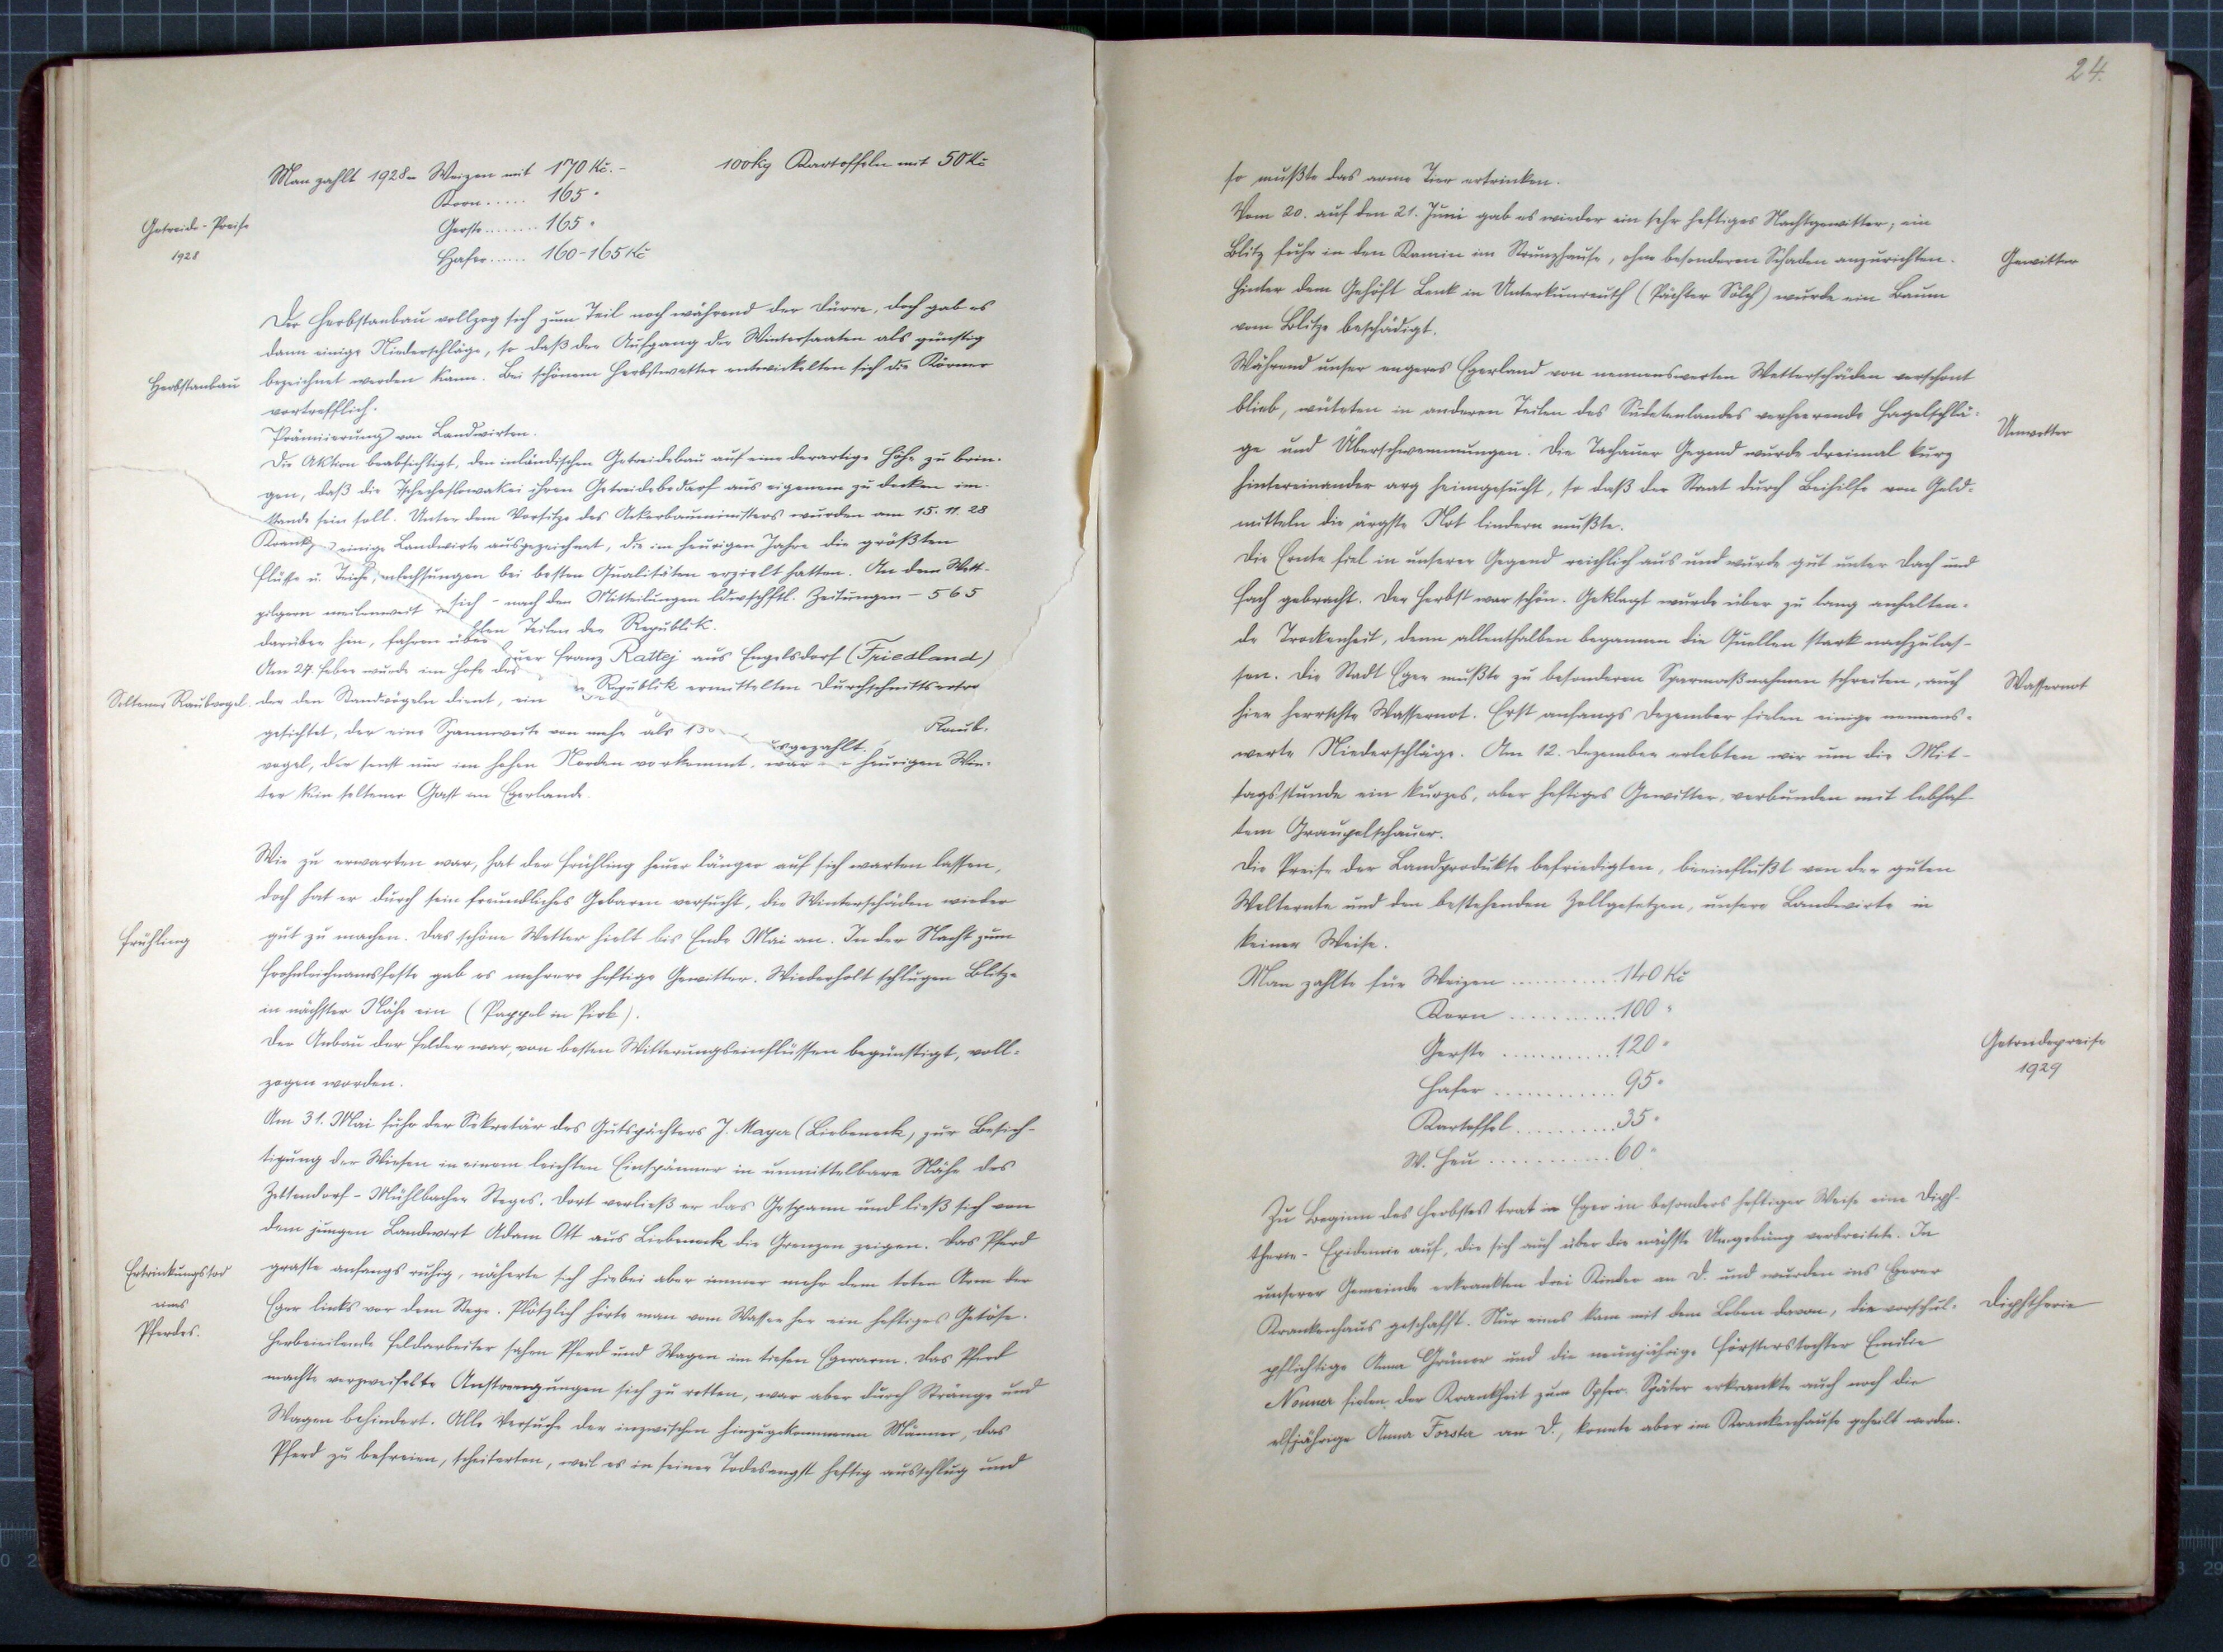 Man zahlt 1928 - Weizen mit 170 Kč. - 100 kg Kartoffeln mit 50 Kč
Korn ..... 165 "
Getreide-Preise
1928
Gerste ........ 165 "
Hafer ...... 160-165 Kč
Der Herbstanbau vollzog sich zum Teil noch während der Dürre, doch gab es
dann einige Niederschläge, so daß der Aufgang der Wintersaaten als günstig
Herbstanbau
bezeichnet werden kann. Bei schönem Herbstwetter entwickelten sich die Körner
vortrefflich.
Prämiierung von Landwirten.
Die Aktion beabsichtigt, den inländischen Getreidebau auf eine derartige Höhe zu brin-
gen, daß die Tschechoslowakei ihren Getreidebedarf aus eigenem zu decken im-
stande sein soll. Unter dem Vorsitze des Ackerbauministers wurden am 15.11.28
einige Landwirte ausgezeichnet, die im heurigen Jahre die größten
Flüsse u. Teiche, bei besten Qualitäten erzielt hatten. An dem Wett-
pilgern meilenweit sich - nach den Mitteilungen ldwschftl. Zeitungen - 565
darüber hin, fahren über Teilen der Republik.
Am 27. Feber wurde im Hofe des Franz Rattej aus Engelsdorf (Friedland)
Seltener Raubvogel.
der den Standvögeln dient, ein Republik ermittelten Durchschnitts
gesichtet, der eine Spannweite von mehr als 130 Raub-
vogel, der sonst nur im hohen Norden vorkommt, war heurigen Win-
ter kein seltener Gast im Egerlande.
Wie zu erwarten war, hat der Frühling heuer länger auf sich warten lassen,
doch hat er durch sein freundliches Gebaren versucht, die Winterschäden wieder
Frühling
gut zu machen. Das schöne Wetter hielt bis Ende Mai an. In der Nacht zum
Frohnleichnamsfeste gab es mehrere heftige Gewitter. Wiederholt schlugen Blitze
in nächster Nähe ein (Pappel in Pirk).
Der Anbau der Felder war, von besten Witterungseinflüssen begünstigt, voll-
zogen worden.
Am 31. Mai fuhr der Sekretär des Gutspächters J. Mayer (Liebeneck) zur Besich-
tigung der Wiesen in einem leichten Einspänner in unmittelbare Nähe des
Zettendorf-Mühlbacher Steges. Dort verließ er das Gespann und ließ sich von
dem jungen Landwirt Adam Ott aus Liebeneck die Grenzen zeigen. Das Pferd
Ertrinkungstod
eines
Pferdes.
graste anfangs ruhig, näherte sich hiebei aber immer mehr dem toten Arm der
Eger links vor dem Stege. Plötzlich hörte man vom Wasser her ein heftiges Getöse.
Herbeieilende Feldarbeiter sahen Pferd und Wagen im tiefen Egerarm. Das Pferd
machte verzweifelte Anstrengungen sich zu retten, war aber durch Stränge und
Wagen behindert. Alle Versuche der inzwischen hinzugekommenen Männer, das
Pferd zu befreien, scheiterten, weil es in seiner Todesangst heftig ausschlug und
24.
so mußte das arme Tier ertrinken.
Vom 20. auf den 21. Juni gab es wieder ein sehr heftiges Nachtgewitter, ein
Blitz fuhr in den Kamin im Strunzhause, ohne besonderen Schaden anzurichten.
Gewitter
Hinter dem Gehöft Lenk in Unterkunreuth (Pächter Sölch) wurde ein Baum
vom Blitze beschädigt.
Während unser engeres Egerland von nennenswerten Wetterschäden verschont
blieb, wüteten in anderen Teilen des Sudetenlandes verheerende Hagelschlä-
Unwetter
ge und Überschwemmungen. Die Tachauer Gegend wurde dreimal kurz
hintereinander arg heimgesucht, so daß der Staat durch Beihilfe von Geld-
mitteln die ärgste Not lindern mußte.
Die Ernte fiel in unserer Gegend reichlich aus und wurde gut unter Dach und
Fach gebracht. Der Herbst war schön. Geklagt wurde über zu lang anhalten-
de Trockenheit, denn allenthalben begannen die Quellen stark nachzulas-
sen. Die Stadt Eger mußte zu besonderen Sparmaßnahmen schreiten, auch
Wassernot
hier herrschte Wassernot. Erst anfangs Dezember fielen einige nennens-
werte Niederschläge. Am 12. Dezember erlebten wir um die Mit-
tagsstunde ein kurzes, aber heftiges Gewitter, verbunden mit lebhaf-
tem Graupelschauer.
Die Preise der Landprodukte befriedigten, beeinflußt von der guten
Welternte und den bestehenden Zollgesetzen, unsere Landwirte in
keiner Weise.
Man zahlte für Weizen ........... 140 Kč
Korn ........... 100 "
Getreidepreise
1929
Gerste ............ 120 "
Hafer ............ 95 "
Kartoffel .......... 35 "
W. Heu ............ 60 "
Zu Beginn des Herbstes trat in Eger in besonders heftiger Weise eine Diph-
therie-Epidemie auf, die sich auch über die nächste Umgebung verbreitete. In
unserer Gemeinde erkrankten drei Kinder an D. und wurden ins Egerer
Krankenhaus geschafft. Nur eines kam mit dem Leben davon, die vorschul-
Diphtherie
pflichtige Anna Grüner und die neunjährige Förstertochter Emilie
Nonner fielen der Krankheit zum Opfer. Später erkrankte auch noch die
elfjährige Anna Forster an D., konnte aber im Krankenhause geheilt werden.